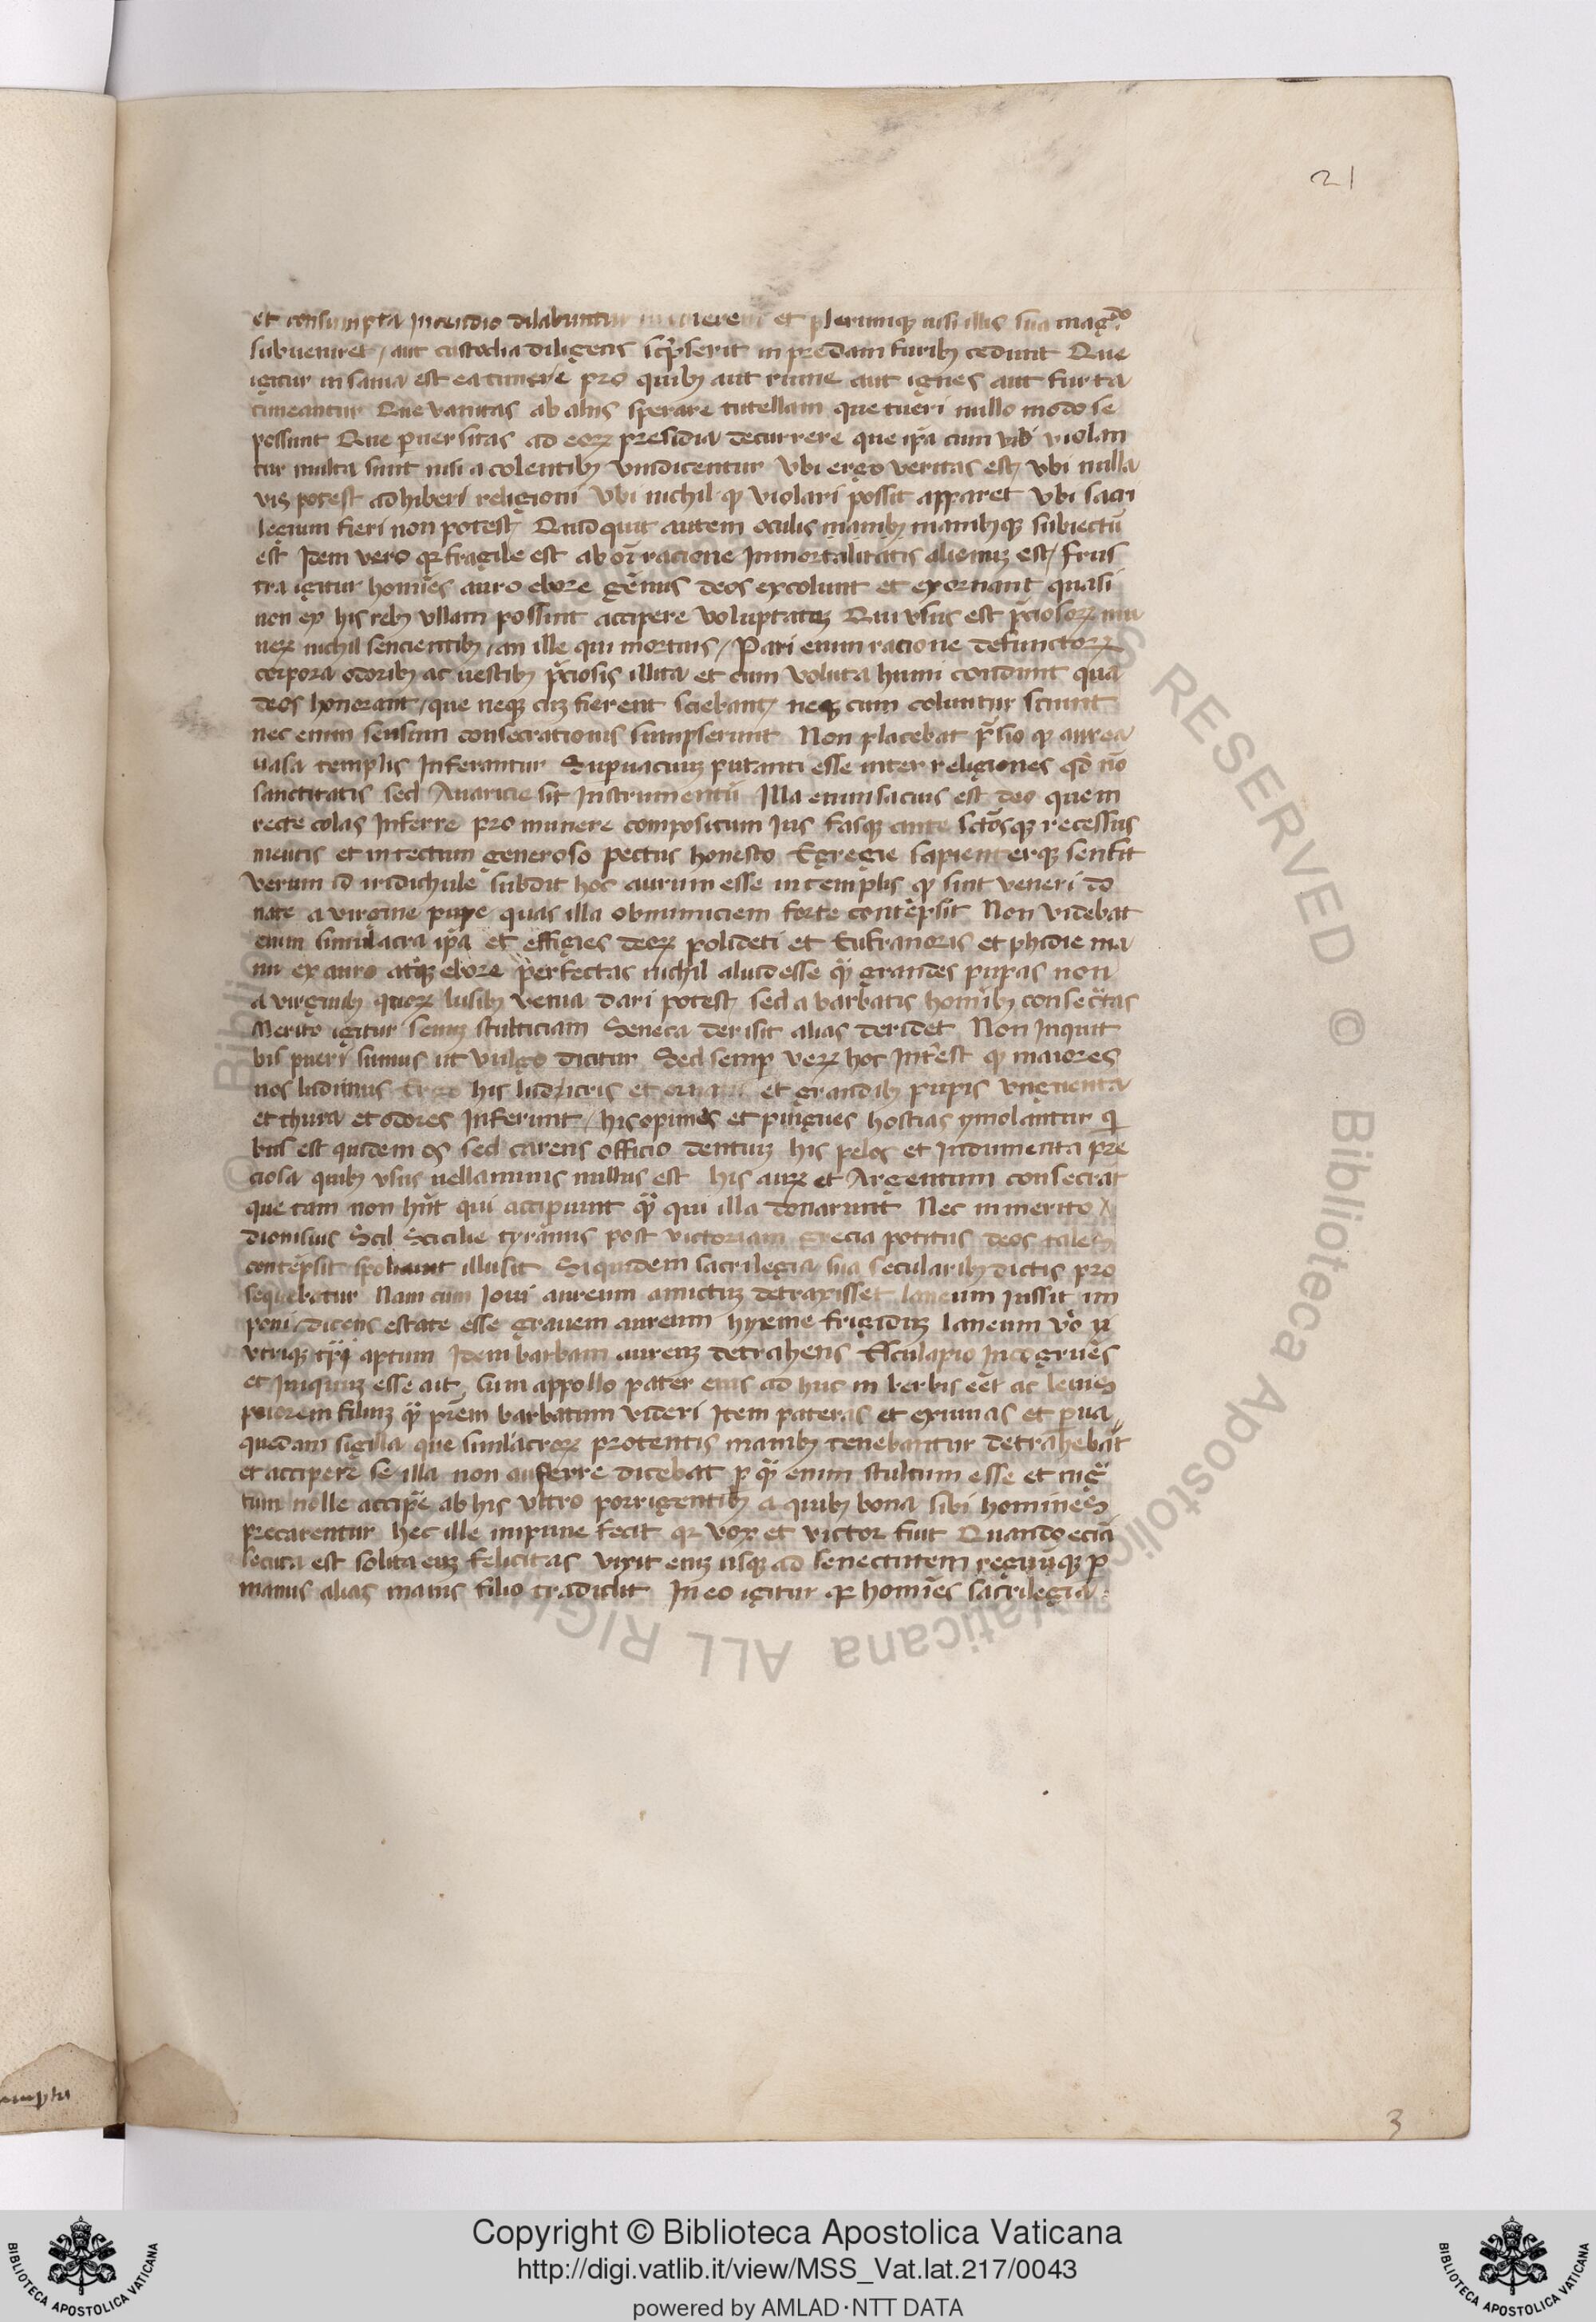 21
et consumpta Incendio dilabuntur in cinerem et plerumq nisi illis sua magto
subueniret / aut custodia diligens scpserit in predam furib cedunt Que
igitur insania est ea timere pro quib aut ruine aut ignes aut furta
timeantur Que vanitas ab aliis sperare tutellam que tueri nullo modo se
possunt Que puersitas ad eorꝝ presidia decurrere que ipa cum vibi violan
tur multa sunt nisi a colentib vindicentur Vbi ergo veritas est / vbi nulla
vis potest adhiberi religioni Vbi nichil qd violari possit apparet Vbi sacri
legium fieri non potest / Quidquit autem oculis manib manibusq subiectu
est Idem vero qr fragile est ab oi racione Immortalitatis alienuz est / Frus
tra igitur homies auro ebore gemis deos excolunt et exornant quasi
non ex his reb vllam possint accipere voluptatez Qui vsus est pciosorꝝ mu
nerꝝ nichil sencientib / an ille qui mortuis / Pari enim racione defunctorꝝ
corpora odorib ac vestib pciosis illita et cum voluta humi condunt qua
deos honorant / que neq cuz fierent sciebant / neq cum coluntur sciunt
nec enim sensum consecrationis sumpserunt Non placebat psio qd aurea
uasa templis Inferantur Supuacuuz putanti esse inter religiones qd no
sanctitatis sed Auaricie sit Instrumentu Illa enim sacius est deo quem
recte colas Inferre pro munere compositum Ius fasq ante sctosq recessus
mentis et intectum generoso pectus honesto Egregie sapienterq sensit
verum id iridichule subdit hoc aurum esse in templis qd sint veneri do
nate a virgine pupe quas illa obmimiciem forte contepsit Non videbat
enim simulacra ipa et effigies deorꝝ polideti et Eufranoris et phidie ma
nu ex auro atq ebore perfectas nichil aliud esse qua grandes pupas non
a virginib quorꝝ lusib venia dari potest / sed a barbatis homib consectas
Merito igitur senuz stulticiam Seneca derisit alias deridet Non Inquit
bis pueri sumus ut vulgo dicitur Sed semp verꝝ hoc Interest qd maiores
nos ludimus Ergo his ludricris et ornatis et grandib pupis vnguenta
et thura et odores Inferunt / his opimes et pingues hostias ymolantur q
bus est quidem os sed carens officio dentiuz his pelos et Indumenta pre
ciosa quib vsus uellaminis nullus est his aurꝝ et Argentum consecrat
que tam non hnt qui accipiunt qua qui illa donarunt Nec inmerito
dionisius Scil Scicilie tyranus post victoriam Grecia potitus deos tales
contepsit spoliauit illusit Siquidem sacrilegia sua secularib dictis pro
sequebatur Nam cum Ioui aureum amictuz detraxisset laneum iussit im
poni / dicens estate esse grauem aureum hyeme frigiduz laneum vo u
vtriq tpi aptum Idem barbam aureuz detrahens Esculapio Incogrues
et Iniquuz esse ait / Cum appollo pater eius ad huc in berbis eet ac leuies
priorem filiuz qua prem barbatum videri Item pateras et exuuias et parua
quedam sigilla que simulacrorꝝ protentis manib tenebantur detrahebat
et accipere se illa non aufferre dicebat p qua enim stultum esse et ing
tum nolle accipe ab his vltro porrigentib a quib bona sibi homines
precarentur hec ille impune fecit qr vox et victor fuit Quando ecia
secuta est solita euz felicitas vixit eniz usq ad senectutem regnuq p
manus alias manis filio tradidit In eo igitur qr homies sacrilegia
mpta
3
Copyright © Biblioteca Apostolica Vaticana
http://digi.vatlib.it/view/MSS_Vat.lat.217/0043
powered by AMLAD·NTT DATA
BIBLIOTECA APOSTOLICA VATICANA
BIBLIOTECA APOSTOLICA VATICANA